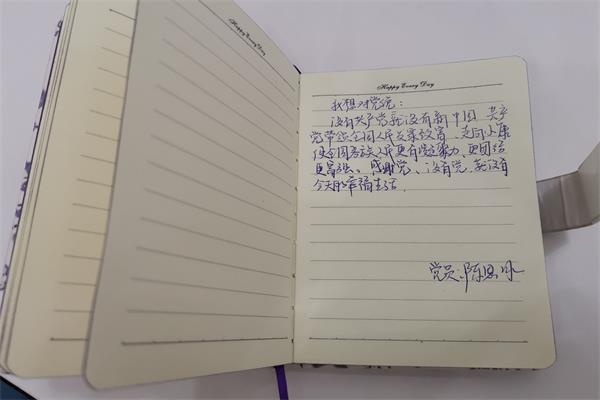 Happy Every Day
Happy Every Day
我想对党说:
没有共产党就没有新中国 共产
党带领全国人民发家致富、走向小康
使全国各族人民更有凝聚力、更团结
更富强。感谢党、没有党,就没有
今天的幸福生活
党员:陈